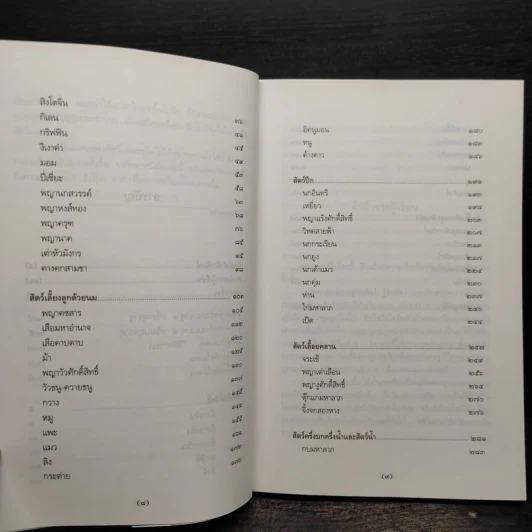 สิงโตจีน
กิเลน ๓๖
กริฟฟิน ๔๑
งีเงาคำ ๔๕
มอม ๔๙
ปี่เซียะ ๕๓
พญานกสวรรค์ ๖๐
พญาหงส์ทอง ๖๘
พญาครุฑ ๗๖
พญานาค ๘๕
เต่าหัวมังกร ๙๒
คางคกสามขา ๙๘
สัตว์เลี้ยงลูกด้วยนม ๑๐๓
พญาคชสาร
เสือมหาอำนาจ ๑๐๕
เสือดาบดาบ
ม้า
พญาวัวศักดิ์สิทธิ์
วัวธนู-ควายธนู
กวาง
หมู
แพะ
แมว
ลิง
กระต่าย ๑๗๖
อิคนูมอน ๑๘๐
หนู
ค้างคาว ๑๘๖
สัตว์ปีก ๑๙๑
นกอินทรี ๑๙๓
เหยี่ยว ๑๙๘
พญาแร้งศักดิ์สิทธิ์ ๒๐๓
วิหคสายฟ้า ๒๐๗
นกกระเรียน
นกยูง
นกเค้าแมว
นกคุ่ม
ห่าน ๒๓๗
ไก่มหาลาภ
เป็ด ๒๔๔
สัตว์เลื้อยคลาน ๒๔๗
จระเข้ ๒๔๙
พญาเต่าเลือน ๒๕๖
พญางูศักดิ์สิทธิ์ ๒๖๔
ตุ๊กแกมหาลาภ ๒๗๐
จิ้งจกสองหาง ๒๗๖
สัตว์ครึ่งบกครึ่งน้ำและสัตว์น้ำ ๒๘๑
กบมหาลาภ ๒๘๓
(๘)
(๙)